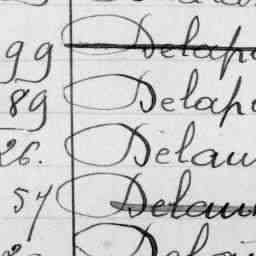 99 Delap
89 Delap
26. Delau
54 Delau